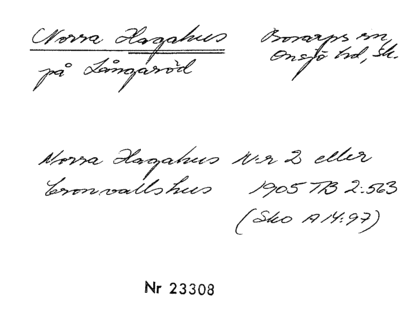 Norra Hagahus
på Långaröd
Bosarps sn,
Onsjö hd, Sk.
Norra Hagahus N:r 2 eller
Cronvallshus 1905 TB 2:563
(Sko A 14:97)
Nr 23308